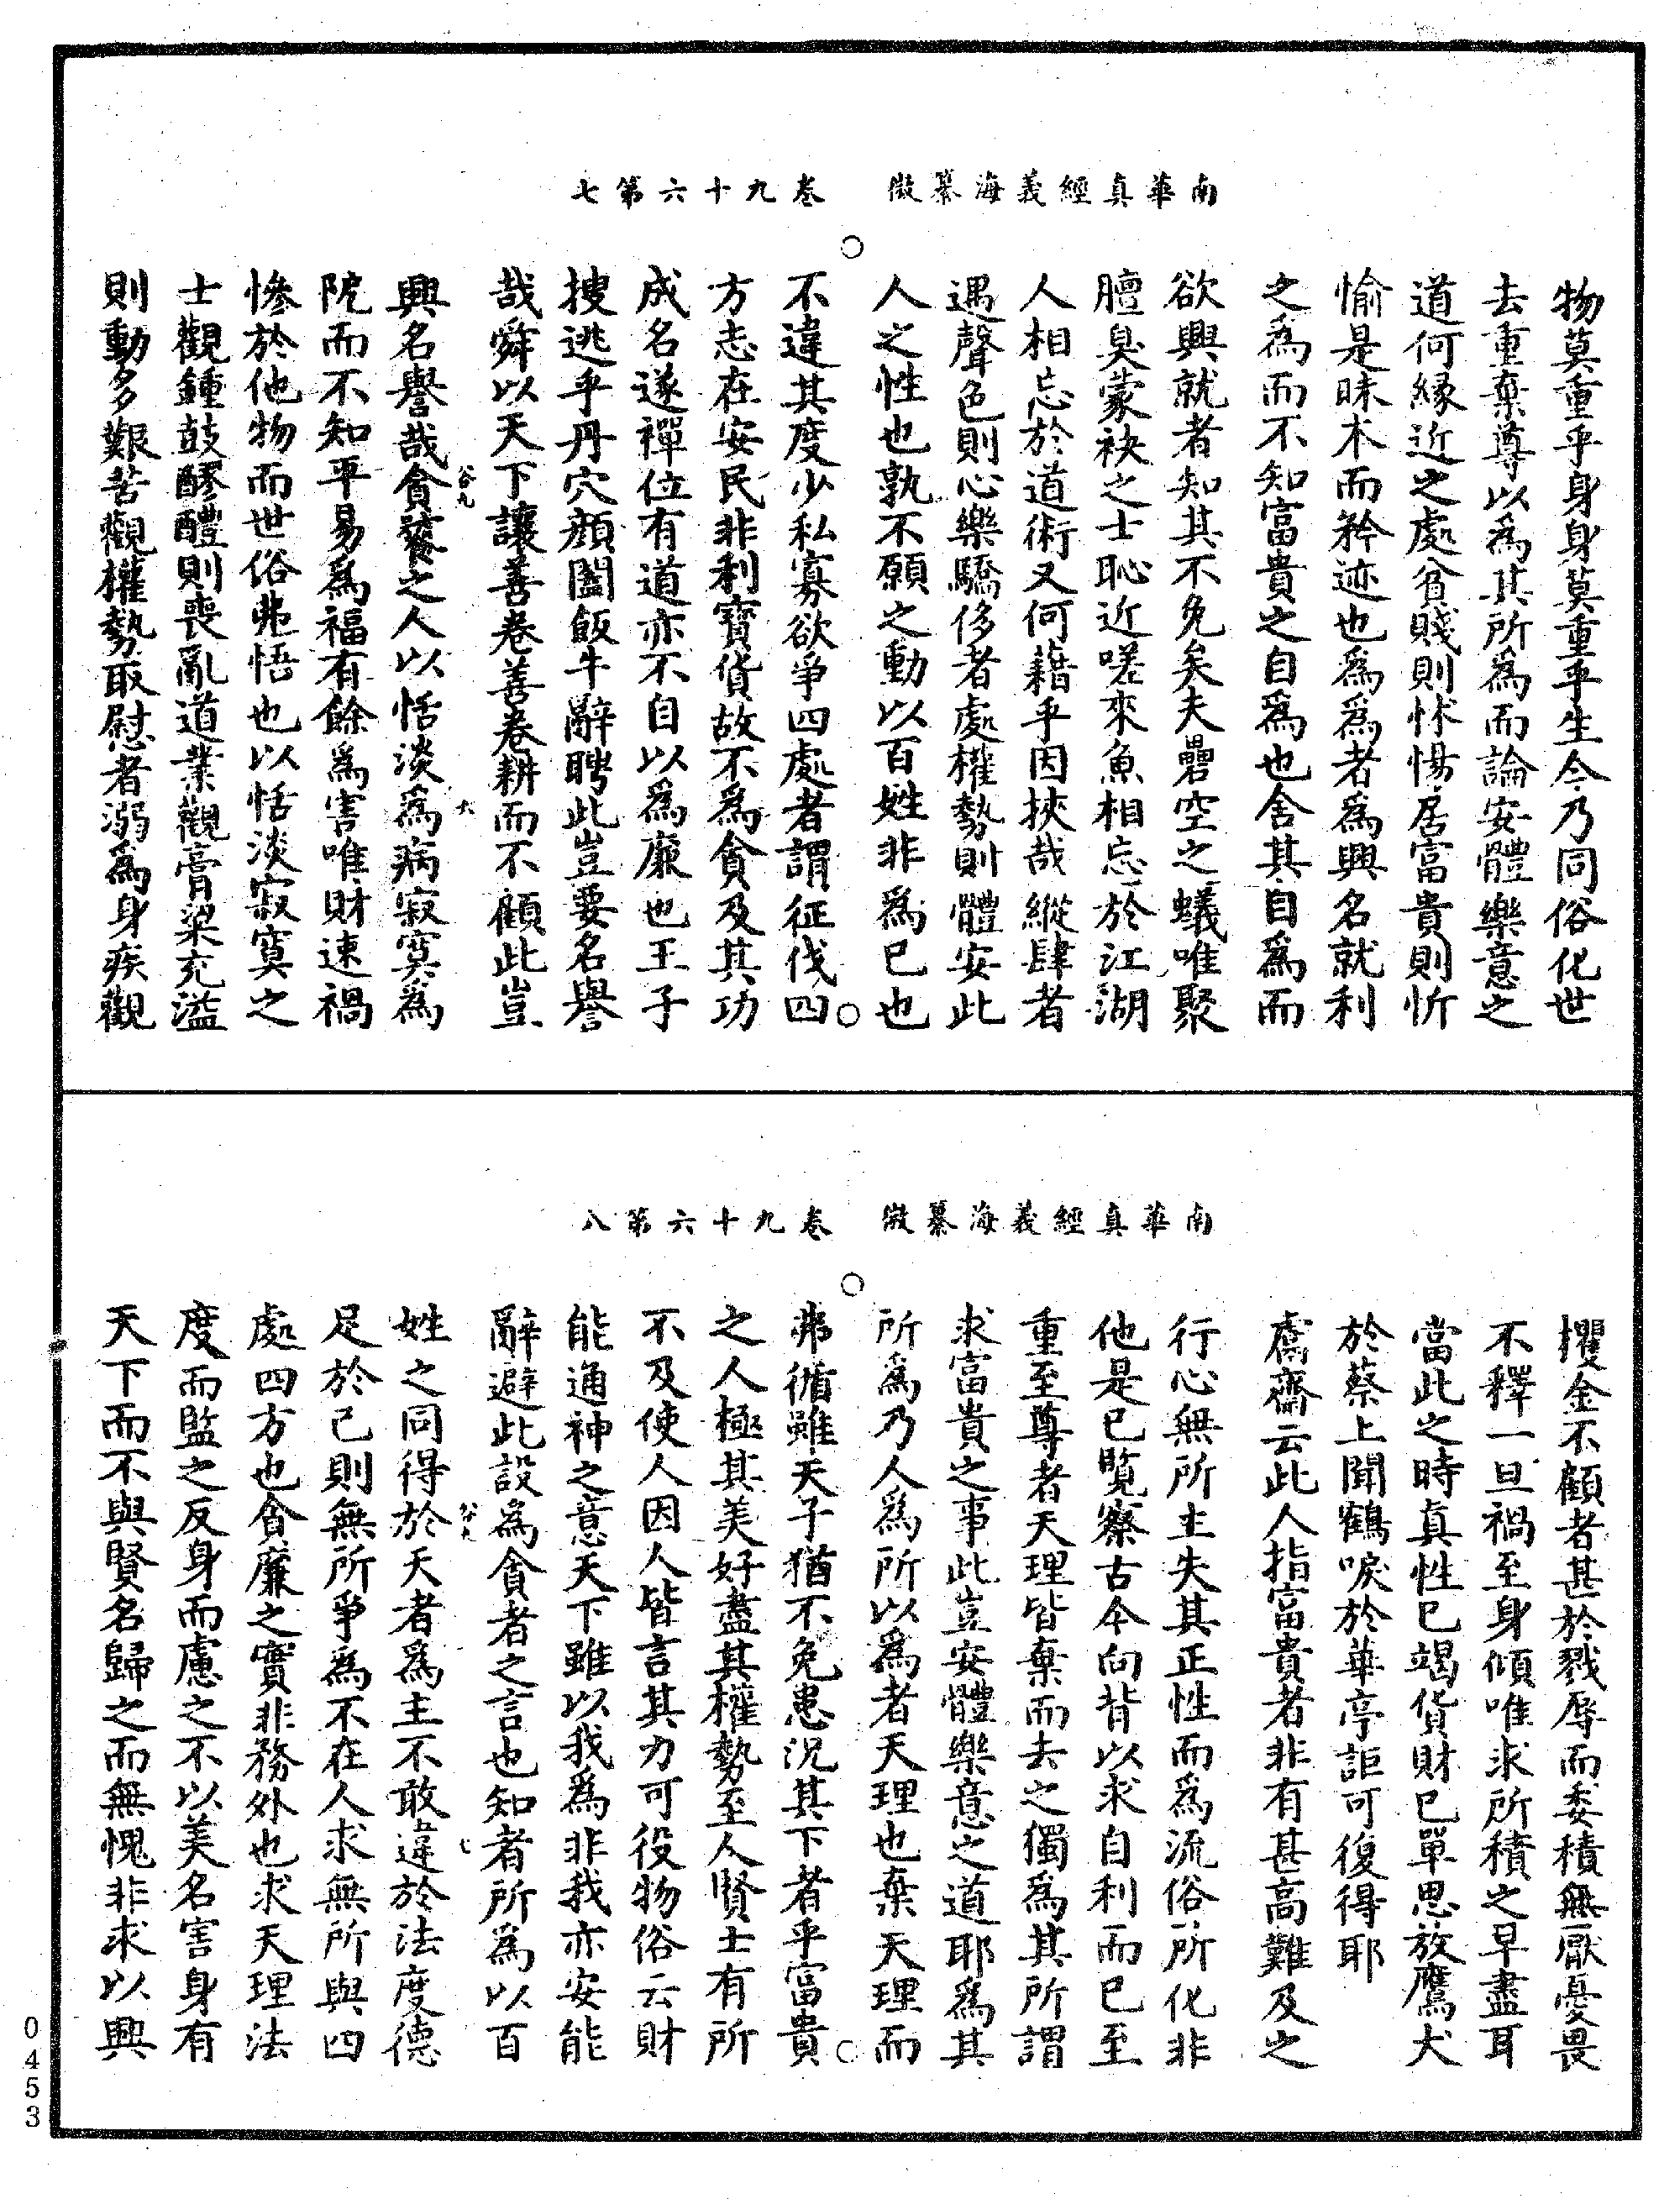 南華真經義海纂微　卷九十六第七
物莫重乎身身莫重乎生今乃同俗化世
去重棄尊以為其所為而論安體樂意之
道何緣近之處貧賤則怵惕居富貴則忻
愉是昧本而矜迹也為為者為興名就利
之為而不知富貴之自為也舍其自為而
欲興就者知其不免矣夫罍空之蟻唯聚
膻臭蒙袂之士恥近嗟來魚相忘於江湖
人相忘於道術又何藉乎因挾哉縱肆者
遇聲色則心樂驕侈者處權勢則體安此
人之性也孰不願之動以百姓非為已也
不違其度少私寡欲爭四處者謂征伐四
方志在安民非利寶貨故不為貪及其功
成名遂禪位有道亦不自以為廉也王子
搜逃乎丹穴顏闔飯牛辭聘此豈要名譽
哉舜以天下讓善卷善卷耕而不顧此豈
興名譽哉貪饕之人以恬淡為病寂寞為
阨而不知平易為福有餘為害唯財速禍
慘於他物而世俗弗悟也以恬淡寂寞之
士觀鍾鼓醪醴則喪亂道業觀膏粱充溢
則動多艱苦觀權勢取慰者溺為身疾觀
南華真經義海纂微　卷九十六第八
攫金不顧者甚於戮辱而委積無厭憂畏
不釋一旦禍至身傾唯求所積之早盡耳
當此之時真性已竭貨財已單思放鷹犬
於蔡上聞鶴唳於華亭詎可復得耶
鬳齋云此人指富貴者非有甚高難及之
行心無所主失其正性而為流俗所化非
他是已覽察古今向背以求自利而已至
重至尊者天理皆棄而去之獨為其所謂
求富貴之事此豈安體樂意之道耶為其
所為乃人為所以為者天理也棄天理而
弗循雖天子猶不免患況其下者乎富貴
之人極其美好盡其權勢至人賢士有所
不及使人因人皆言其力可役物俗云財
能通神之意天下雖以我為非我亦安能
辭避此設為貪者之言也知者所為以百
姓之同得於天者為主不敢違於法度德
足於己則無所爭為不在人求無所與四
處四方也貪廉之實非務外也求天理法
度而監之反身而慮之不以美名害身有
天下而不與賢名歸之而無愧非求以興
0453